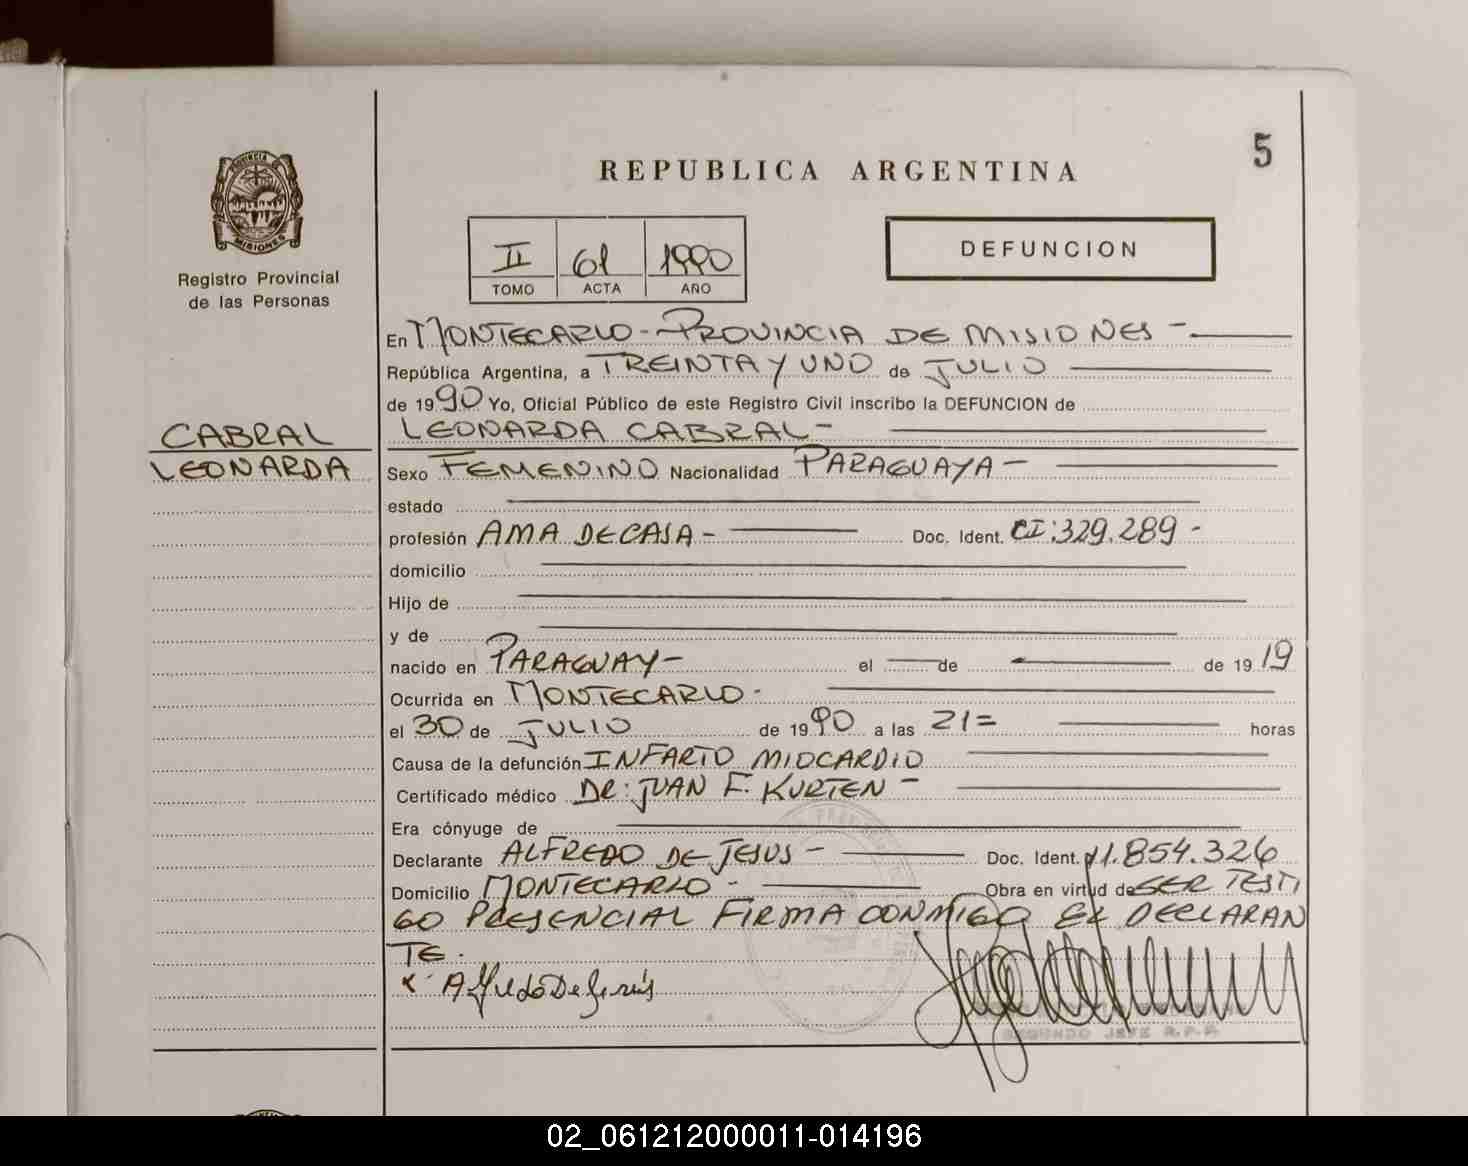 5
REPUBLICA ARGENTINA
PROVINCIA DE
MISIONES
Registro Provincial
de las Personas
II 61 1990
TOMO ACTA AÑO
DEFUNCION
En MONTECARLO - PROVINCIA DE MISIONES -
República Argentina, a TREINTA Y UNO de JULIO
de 1990 Yo, Oficial Público de este Registro Civil inscribo la DEFUNCION de
LEONARDA CABRAL -
CABRAL
LEONARDA
Sexo FEMENINO Nacionalidad PARAGUAYA -
estado
profesión AMA DE CASA - Doc. Ident. CI: 329.289 -
domicilio
Hijo de
y de
nacido en PARAGUAY - el de de 1919
Ocurrida en MONTECARLO -
el 30 de JULIO de 1990 a las 21= horas
Causa de la defunción INFARTO MIOCARDIO
Certificado médico DR: JUAN F. KURTEN -
Era cónyuge de
Declarante ALFREDO DE JESUS - Doc. Ident. 11.854.326
Domicilio MONTECARLO - Obra en virtud de SER TESTI
GO PRESENCIAL FIRMA CONMIGO EL DECLARAN
TE.
x Alfredo De Jesús
SEGUNDO JEFE R.P.P.
02_061212000011-014196